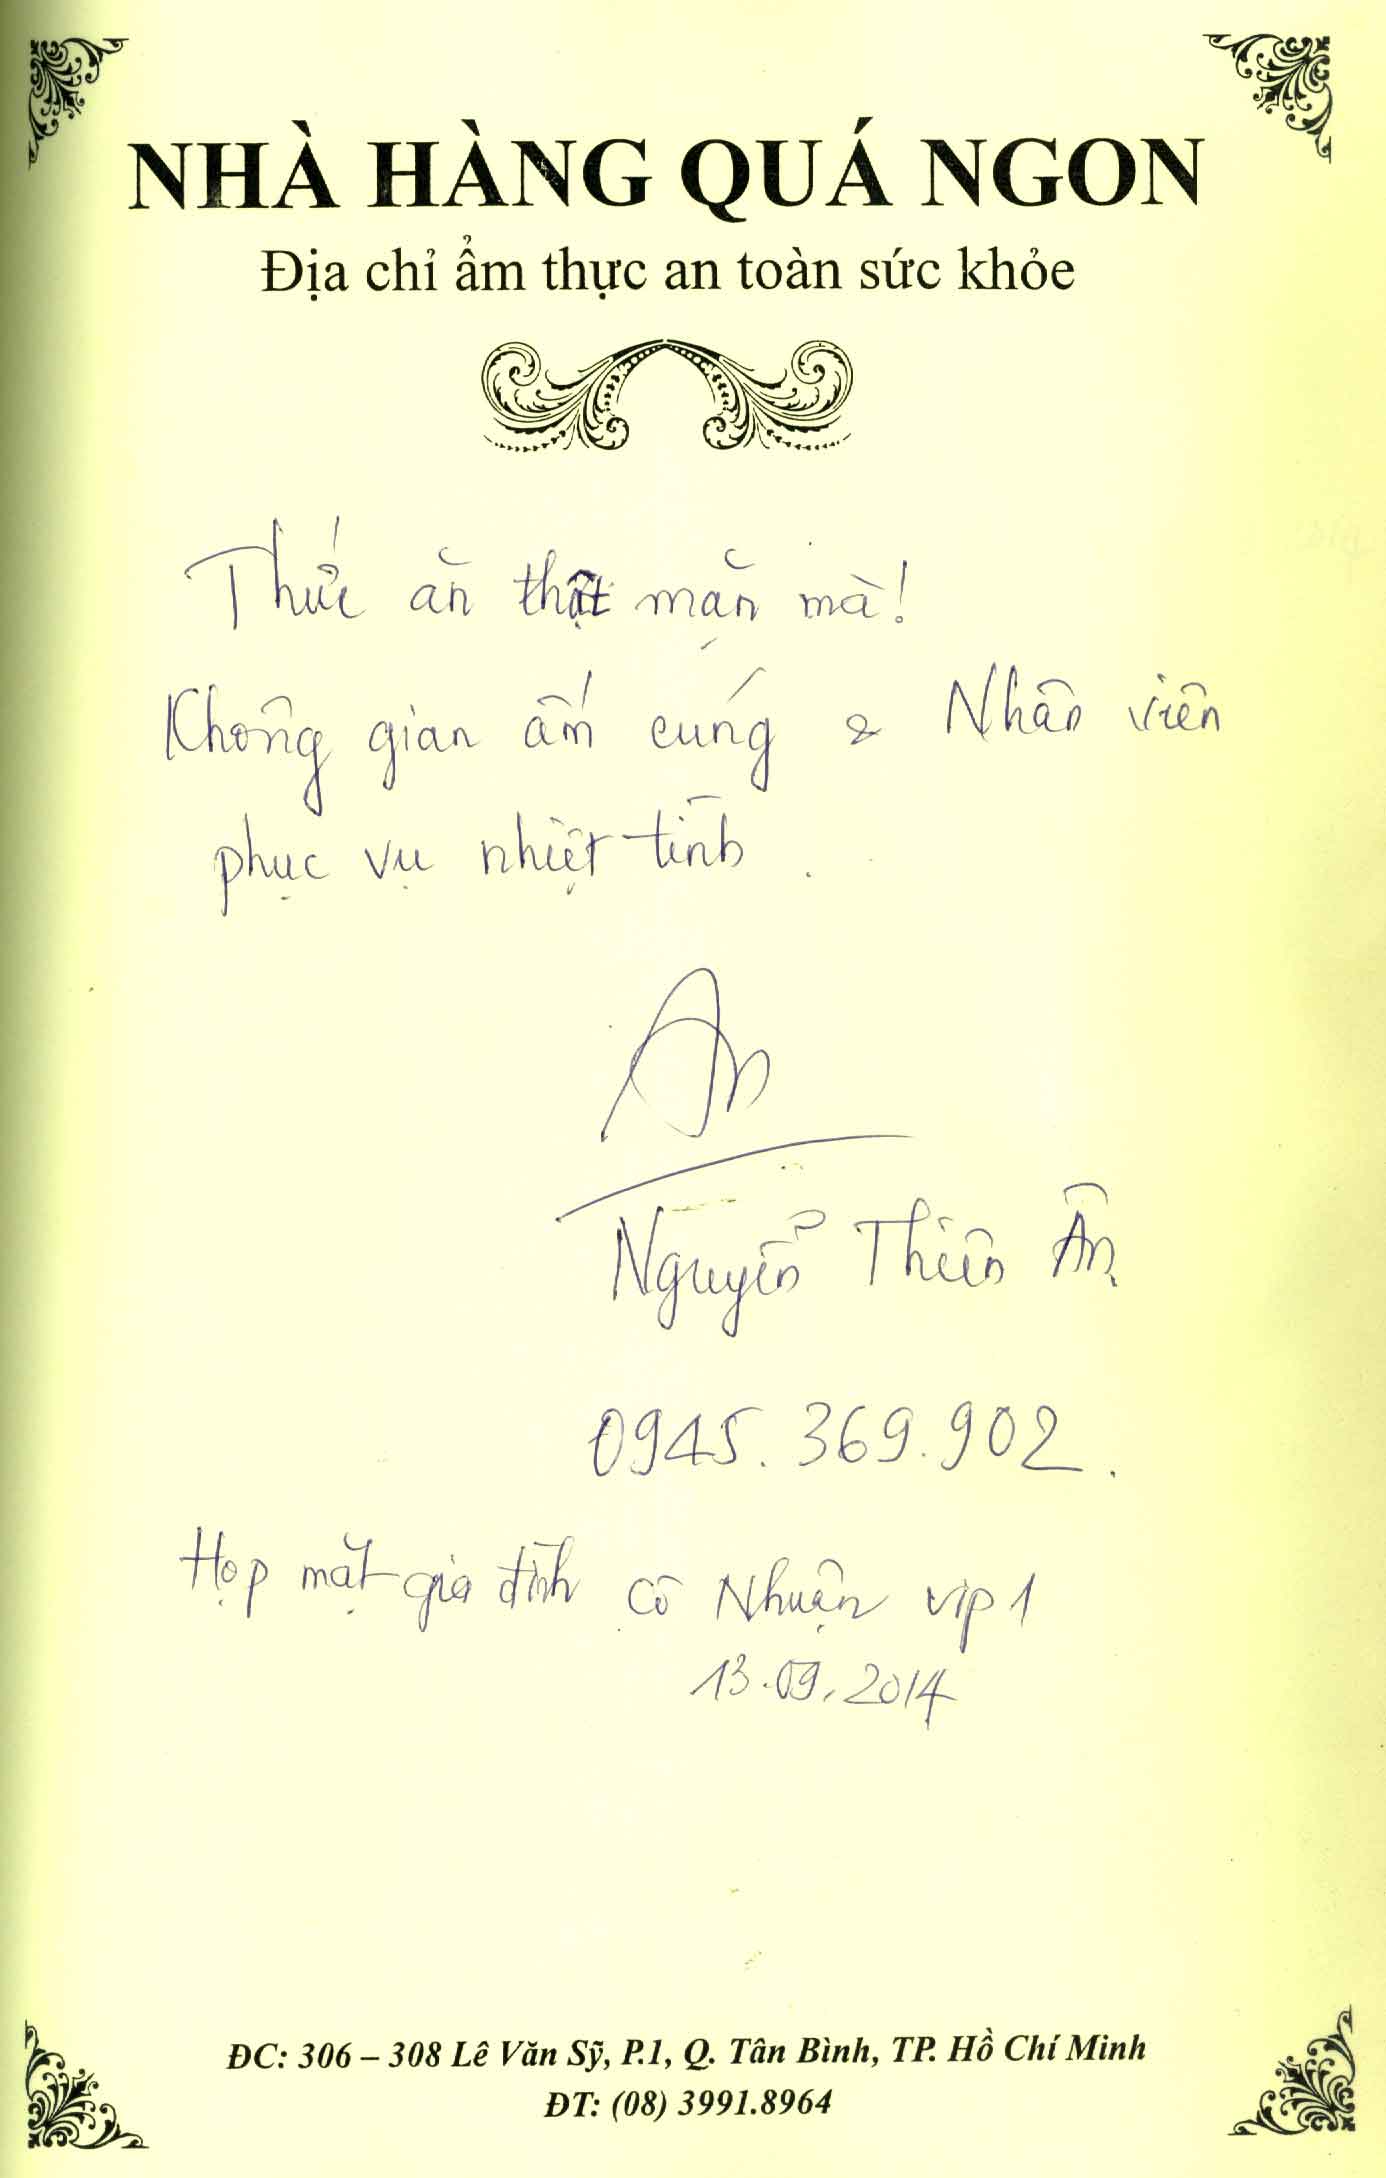 NHÀ HÀNG QUÁ NGON
Địa chỉ ẩm thực an toàn sức khỏe
Thức ăn thật mặn mà!
Không gian ấm cúng & Nhân viên
phục vụ nhiệt tình.
Ân
Nguyễn Thiên Ân
0945.369.902.
Họp mặt gia đình cô Nhuận vip 1
13.09.2014
ĐC: 306 – 308 Lê Văn Sỹ, P.1, Q. Tân Bình, TP. Hồ Chí Minh
ĐT: (08) 3991.8964